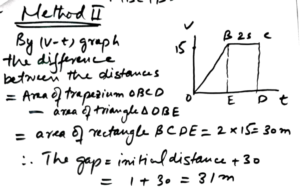 Method II
By (v-t) graph
the difference
between the distances
= Area of trapezium OBCD
- area of triangle Δ OBE
= area of rectangle BCDE = 2 × 15 = 30m
∴ The gap = initial distance + 30
= 1 + 30 = 31 m
V
B 2s C
15
O E D t